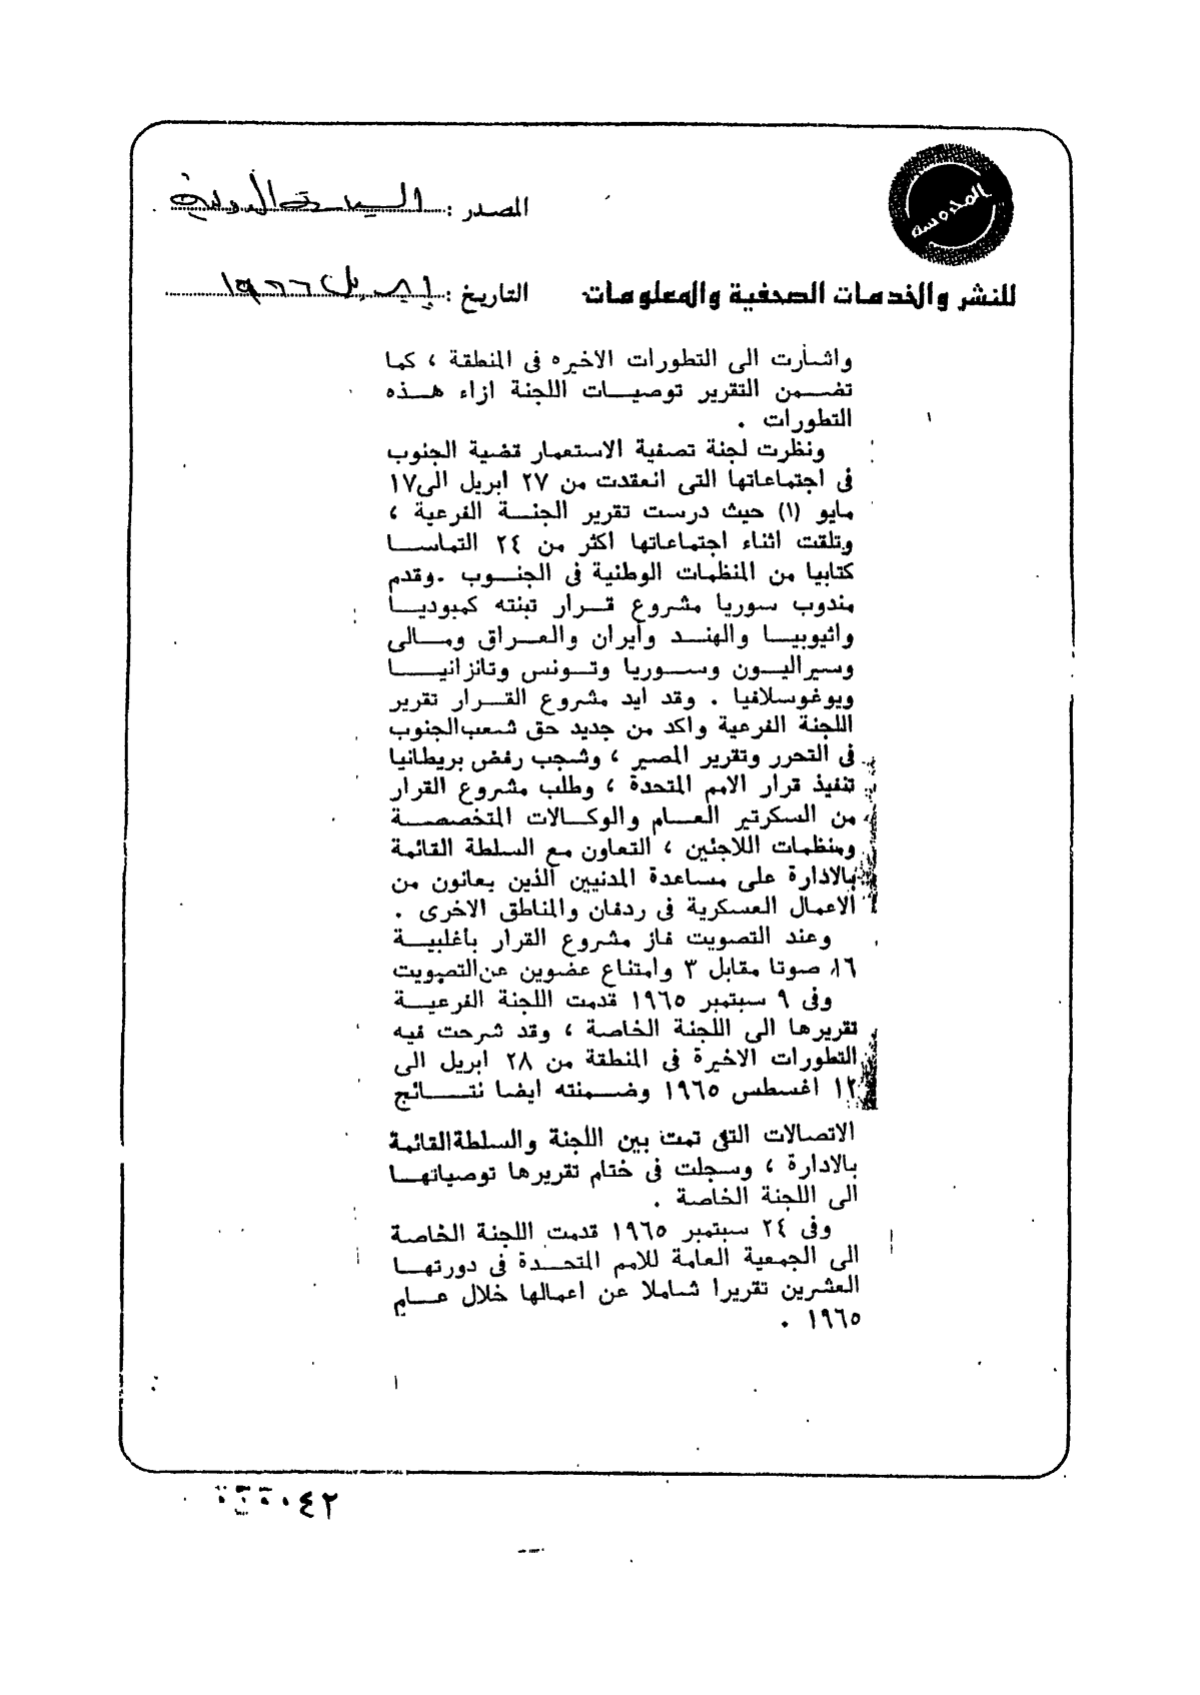 المحروسة
المصدر : السياسة الدولية
للنشر والخدمات الصحفية والمعلومات
التاريخ : إبريل ١٩٦٦
واشارت الى التطورات الاخيره فى المنطقة ، كما
تضمن التقرير توصيات اللجنة ازاء هذه
التطورات .
ونظرت لجنة تصفية الاستعمار قضية الجنوب
فى اجتماعاتها التى انعقدت من ٢٧ ابريل الى ١٧
مايو (١) حيث درست تقرير الجنة الفرعية ،
وتلقت اثناء اجتماعاتها اكثر من ٢٤ التماسا
كتابيا من المنظمات الوطنية فى الجنوب . وقدم
مندوب سوريا مشروع قرار تبنته كمبوديا
واثيوبيا والهند وأيران والعراق ومالى
وسيراليون وسوريا وتونس وتانزانيا
ويوغوسلافيا . وقد ايد مشروع القرار تقرير
اللجنة الفرعية واكد من جديد حق شعب الجنوب
فى التحرر وتقرير المصير ، وشجب رفض بريطانيا
تنفيذ قرار الامم المتحدة ، وطلب مشروع القرار
من السكرتير العام والوكالات المتخصصة
ومنظمات اللاجئين ، التعاون مع السلطة القائمة
بالادارة على مساعدة المدنيين الذين يعانون من
الاعمال العسكرية فى ردفان والمناطق الاخرى .
وعند التصويت فاز مشروع القرار بأغلبية
١٦ صوتا مقابل ٣ وامتناع عضوين عن التصويت
وفى ٩ سبتمبر ١٩٦٥ قدمت اللجنة الفرعية
تقريرها الى اللجنة الخاصة ، وقد شرحت فيه
التطورات الاخيرة فى المنطقة من ٢٨ ابريل الى
١٢ اغسطس ١٩٦٥ وضمنته ايضا نتائج
الاتصالات التى تمت بين اللجنة والسلطة القائمة
بالادارة ، وسجلت فى ختام تقريرها توصياتها
الى اللجنة الخاصة .
وفى ٢٤ سبتمبر ١٩٦٥ قدمت اللجنة الخاصة
الى الجمعية العامة للامم المتحدة فى دورتها
العشرين تقريرا شاملا عن اعمالها خلال عام
١٩٦٥ .